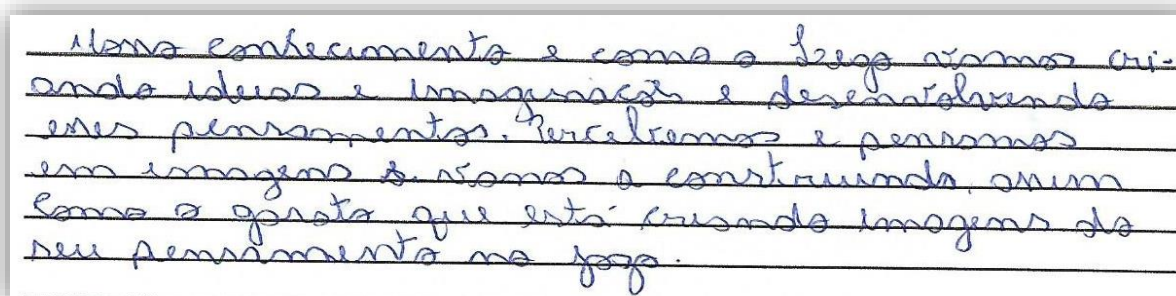 Nosso conhecimento e como o Lego vamos cri-
ando ideias e imaginação e desenvolvendo
esses pensamentos. Percebemos e pensamos
em imagens e vamos a construindo, assim
como o garoto que está criando imagens do
seu pensamento no jogo.